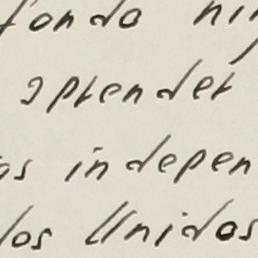 fondo ni
aprender
os indepen
dos Unidos